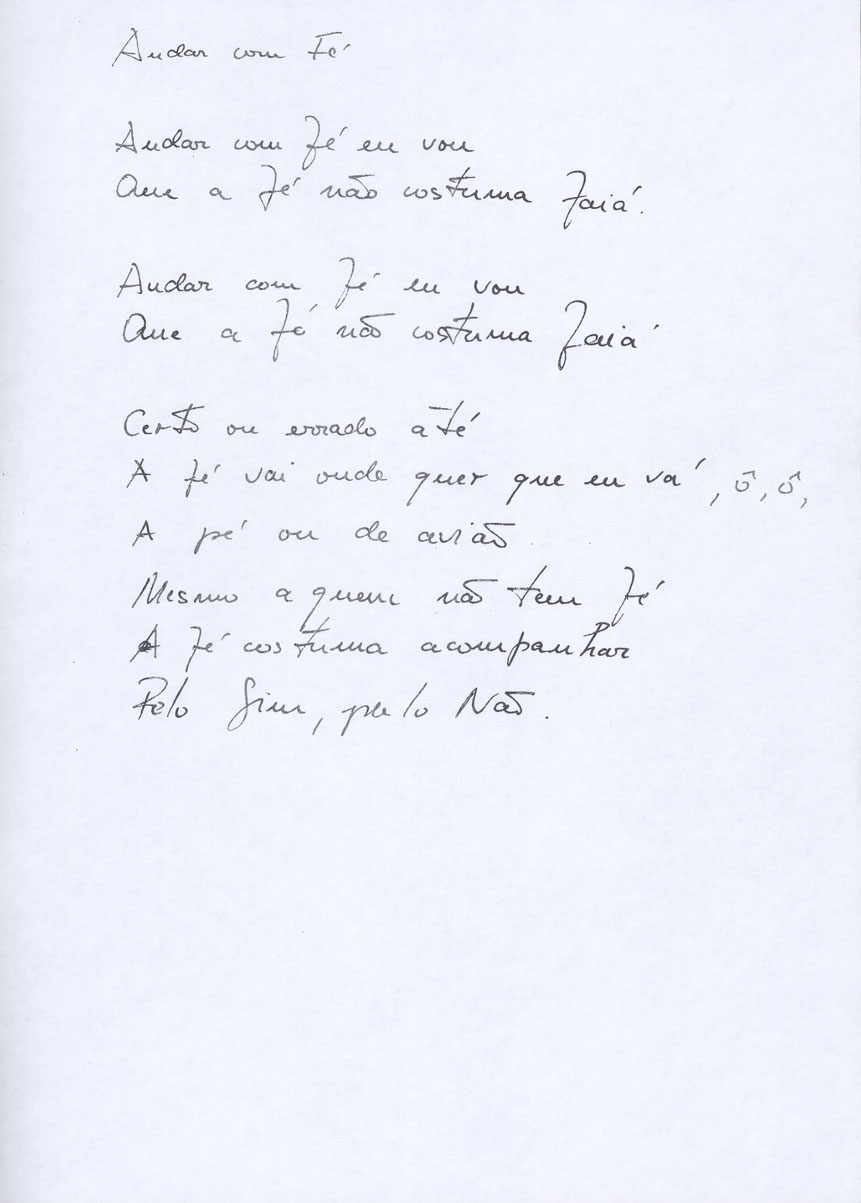 Andar com Fé
Andar com fé eu vou
Que a fé não costuma faiá.
Andar com fé eu vou
Que a fé não costuma faiá
Certo ou errado até
A fé vai onde quer que eu vá, ô, ô,
A pé ou de avião
Mesmo a quem não tem fé
A fé costuma acompanhar
Pelo Sim, pelo Não.